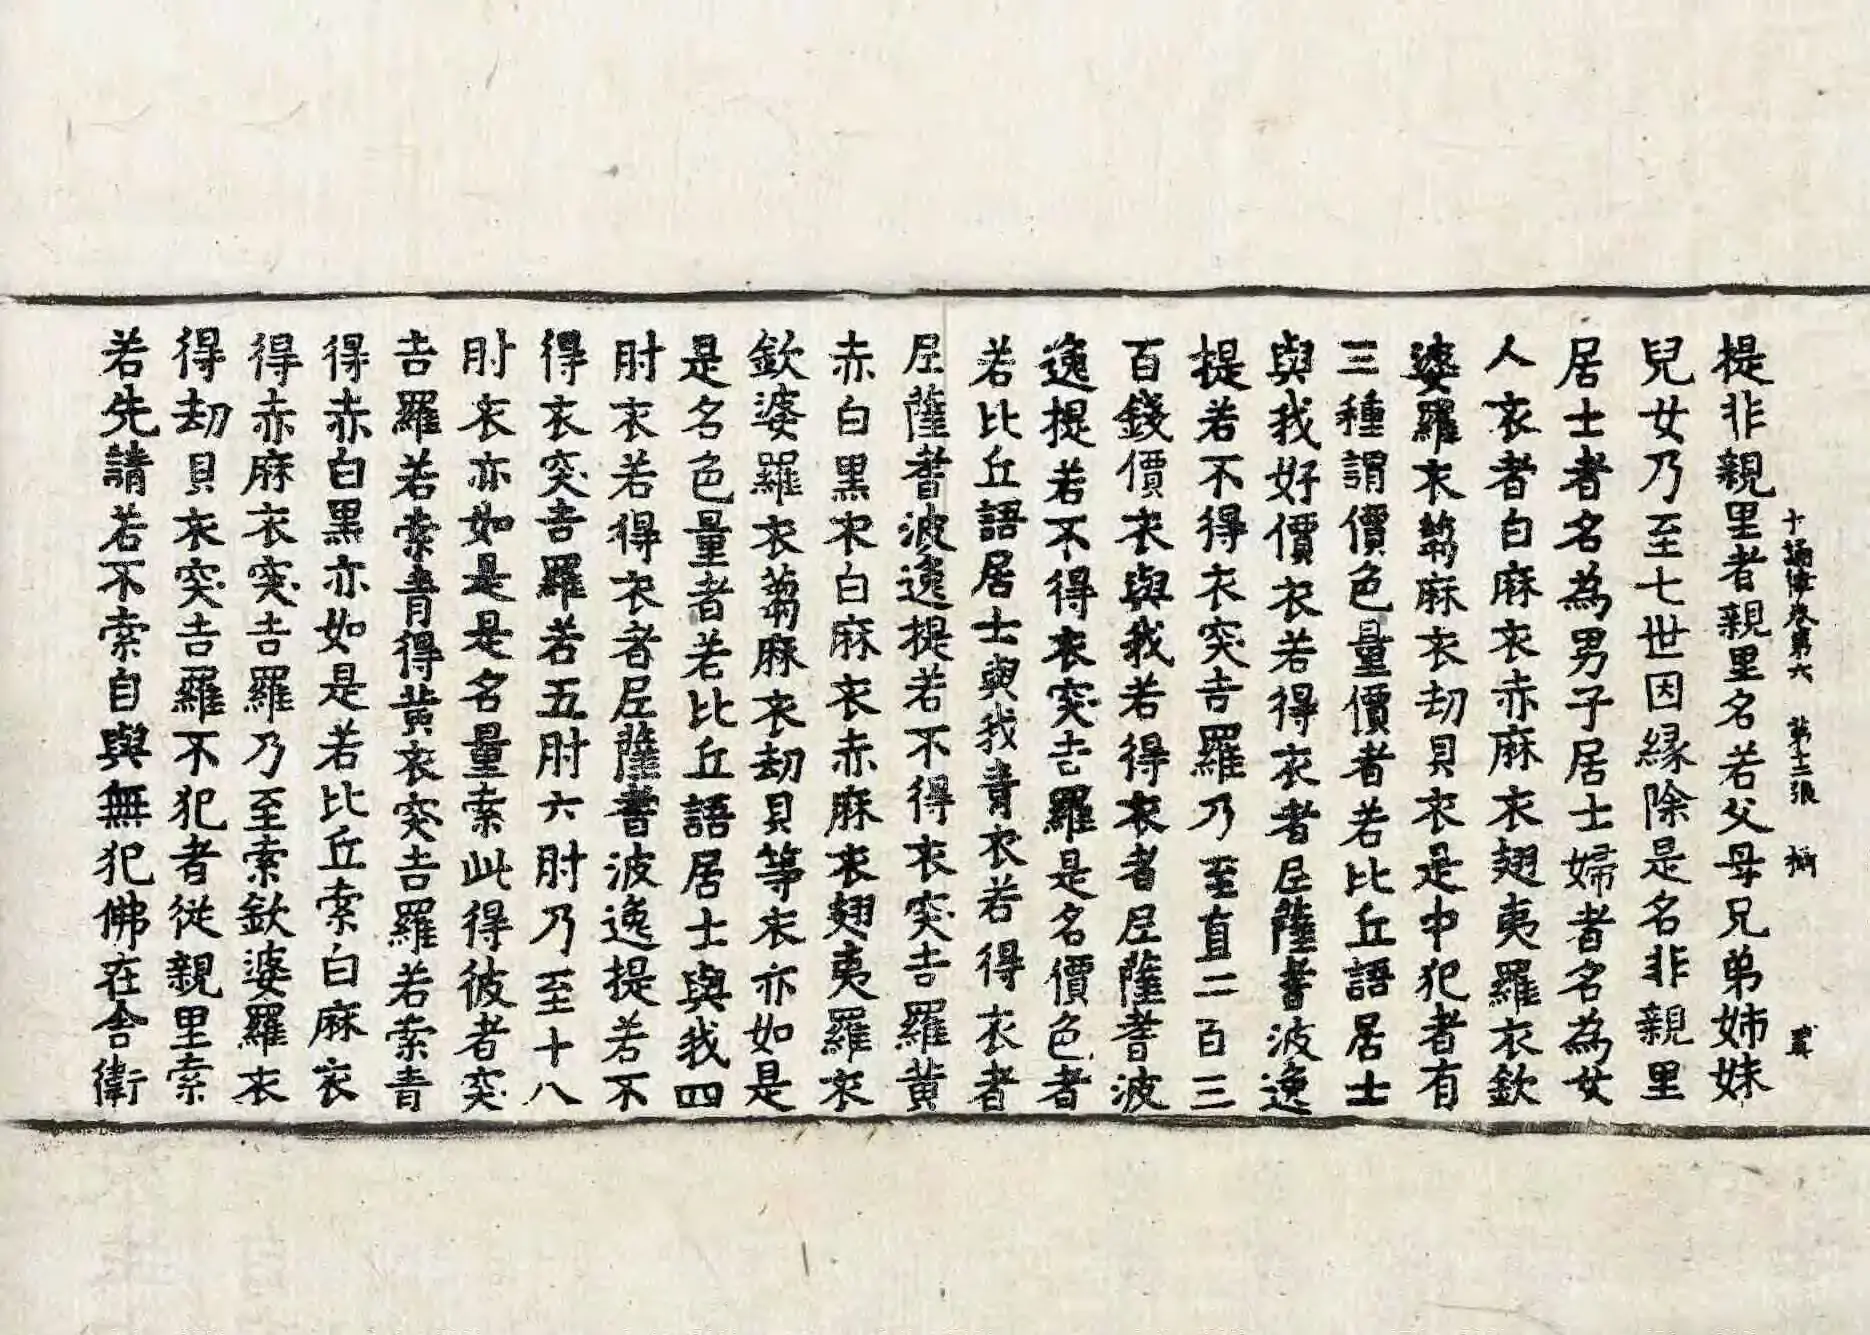 十誦律卷第六　第十二張
提非親里者親里名若父母兄弟姊妹
兒女乃至七世因緣除是名非親里
居士者名為男子居士婦者名為女
人衣者白麻衣赤麻衣翅夷羅衣欽
婆羅衣芻麻衣劫貝衣是中犯者有
三種謂價色量價者若比丘語居士
與我好價衣若得衣者尼薩耆波逸
提若不得衣突吉羅乃至直二百三
百錢價衣與我若得衣者尼薩耆波
逸提若不得衣突吉羅是名價色者
若比丘語居士與我青衣若得衣者
尼薩耆波逸提若不得衣突吉羅黃
赤白黑衣白麻衣赤麻衣翅夷羅衣
欽婆羅衣芻麻衣劫貝等衣亦如是
是名色量者若比丘語居士與我四
肘衣若得衣者尼薩耆波逸提若不
得衣突吉羅若五肘六肘乃至十八
肘衣亦如是是名量索此得彼者突
吉羅若索青得黃衣突吉羅若索青
得赤白黑亦如是若比丘索白麻衣
得赤麻衣突吉羅乃至索欽婆羅衣
得劫貝衣突吉羅不犯者從親里索
若先請若不索自與無犯佛在舍衛